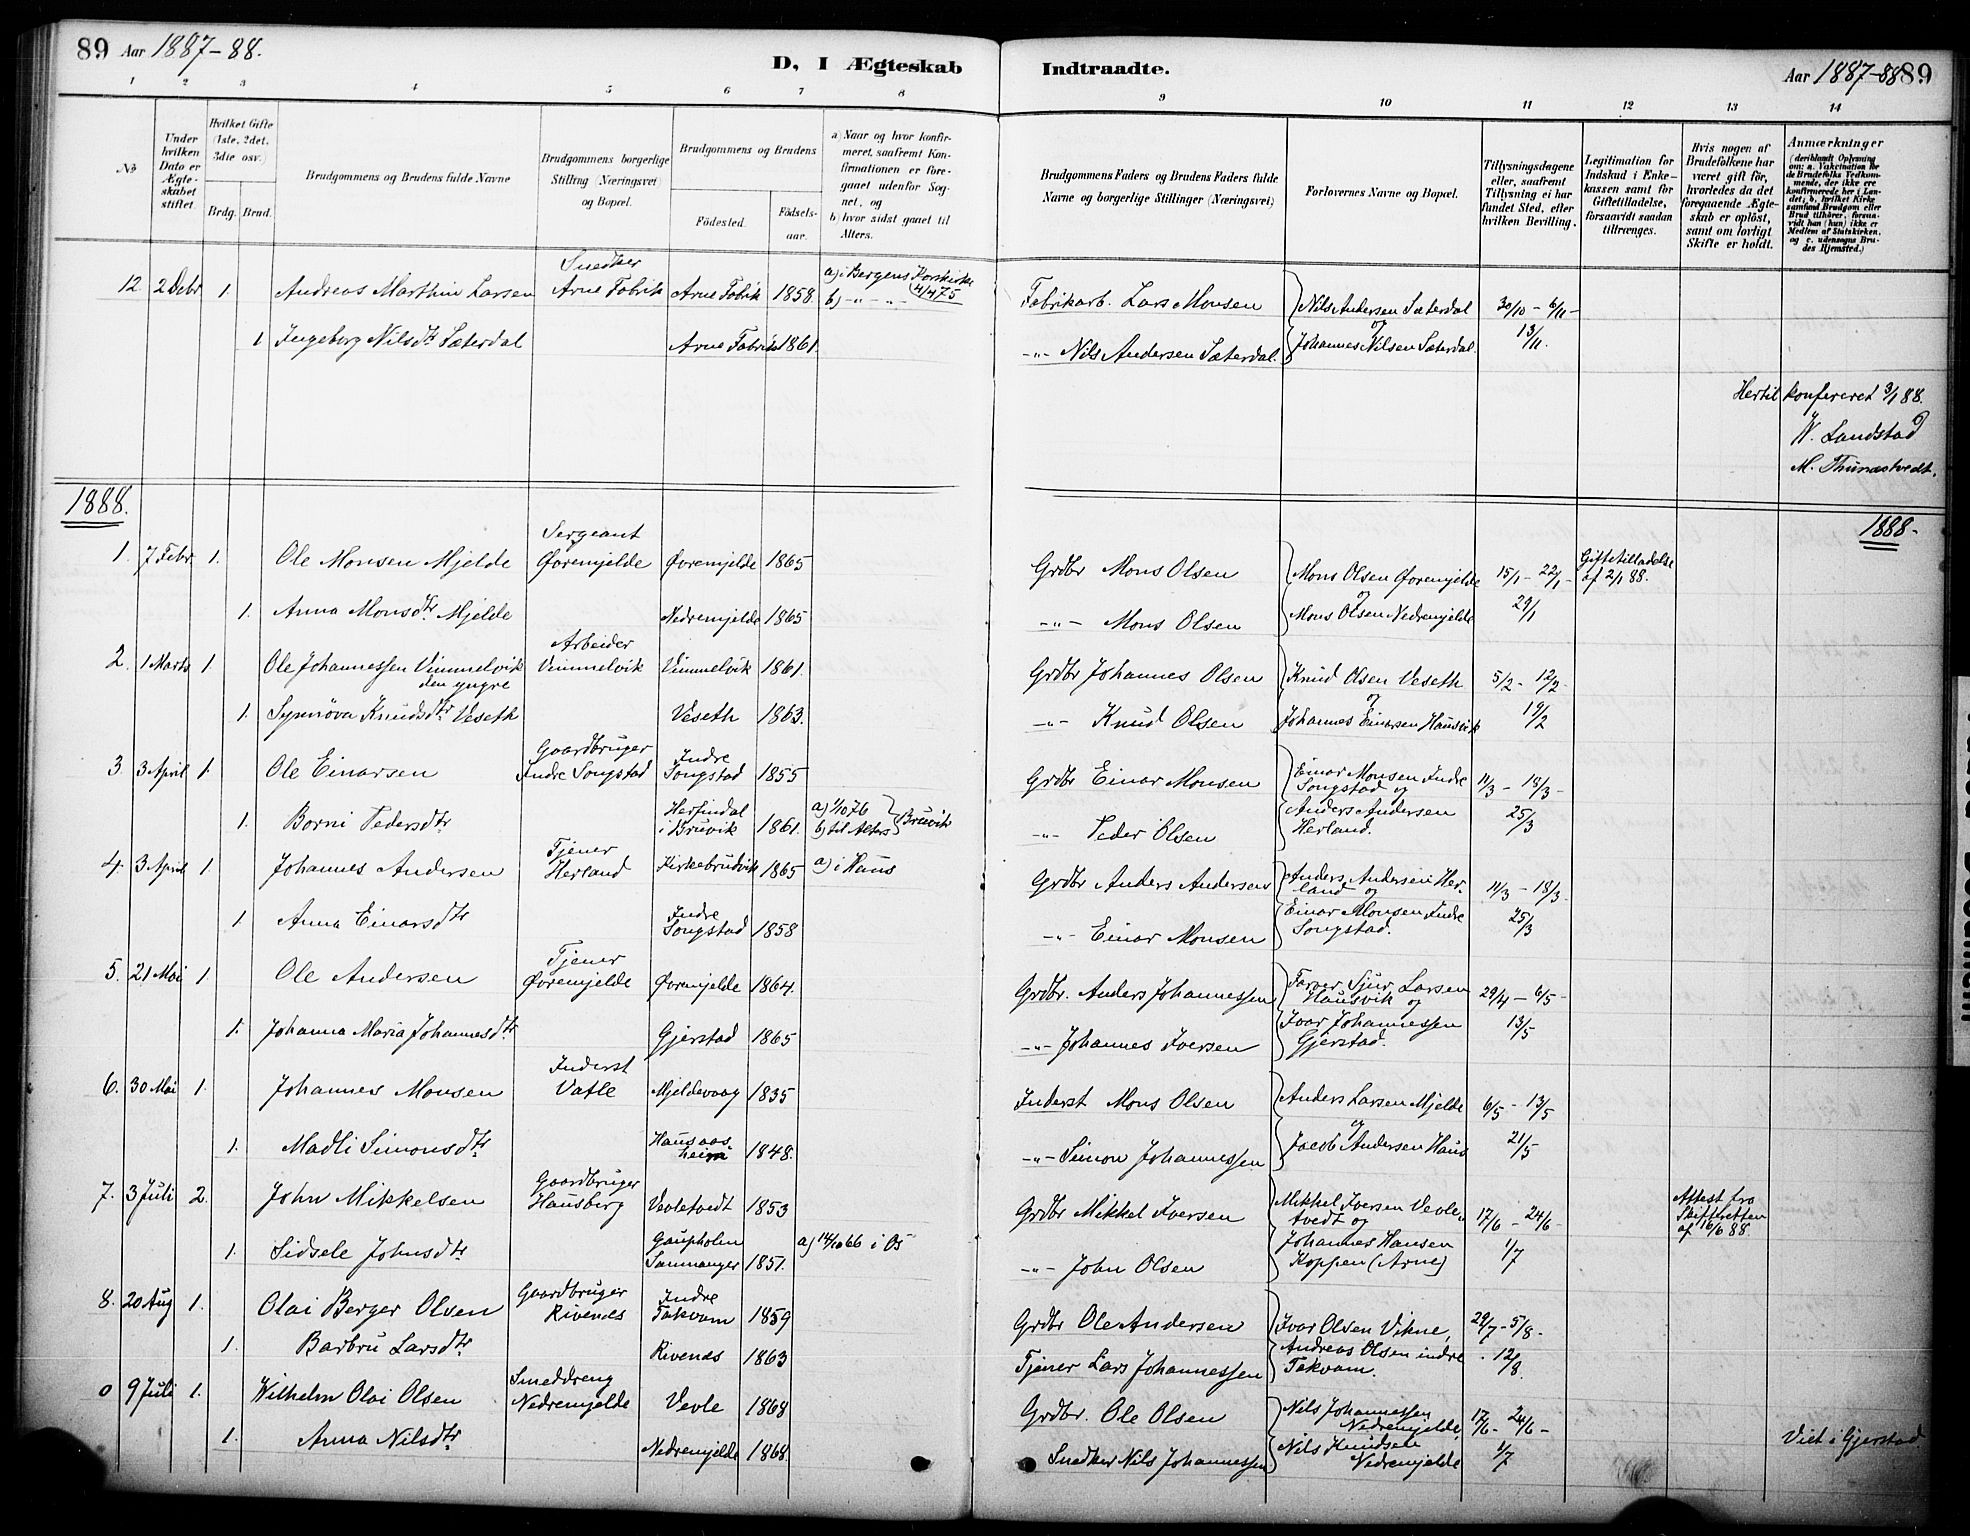 89 Aar 1887-88.
D, I Ægteskab Indtraadte.
Aar 1887-88 89
1 2 3 4 5 6 7 8 9 10 11 12 13 14
No
Under hvilken Dato er Ægteskabet stiftet.
Hvilket Gifte (1ste, 2det, 3die osv.)
Brdg. Brud.
Brudgommens og Brudens fulde Navne
Brudgommens borgerlige Stilling (Næringsvei) og Bopæl.
Brudgommens og Brudens
Fødested. Fødsels-aar.
a) Naar og hvor konfirmeret, saafremt Konfirmationen er foregaaet udenfor Sognet, og
b) hvor sidst gaaet til Alters.
Brudgommens Faders og Brudens Faders fulde Navne og borgerlige Stillinger (Næringsvei)
Forlovernes Navne og Bopæl.
Tillysningsdagene eller, saafremt Tillysning ei har fundet Sted, efter hvilken Bevilling.
Legitimation for Indskud i Enkekassen samt for Giftetilladelse, forsaavidt saadan tiltrænges.
Hvis nogen af Brudefolkene har været gift før, hvorledes da det foregaaende Ægteskab er opløst, samt om lovligt Skifte er holdt.
Anmærkninger (deriblandt Oplysning om: a. Vakcination for de Brudefolks Vedkommende, der ikke ere konfirmerede her i Landet; b, hvilket Kirkesamfund Brudgom eller Brud tilhører, forsaavidt han (hun) ikke er Medlem af Statskirken, og c. udensogns Brudes Hjemsted.)
12 2 Debr 1. Andreas Marthin Larsen Snedker Arne Fabrik Arne Fabrik 1858 a) i Bergens Korskirke 4/4 75 b) -"- -"- Fabrikarb. Lars Monsen Nils Andersen Sæterdal og 30/10 - 6/11 -
1 Ingeborg Nilsdtr Sæterdal Arne Fabrik 1861. -"- Nils Andersen Sæterdal. Johannes Nilsen Sæterdal. 13/11.
Hertil konfereret 3/1 88.
W. Landstad
M. Thunestvedt.
1888. 1888-
1. 7 Febr 1. Ole Monsen Mjelde Sergeant Øvremjelde Øvremjelde 1865 Grdbr Mons Olsen Mons Olsen Øvremjelde og 15/1 - 22/1 - Giftetilladelse af 2/1 88.
1. Anna Monsdtr. Mjelde Nedremjelde 1865 -"- Mons Olsen Mons Olsen Nedremjelde 29/1
2. 1 Marts 1. Ole Johannessen Vimmelvik den yngre Arbeider Vimmelvik Vimmelvik 1861. Grdbr Johannes Olsen Knud Olsen Veseth og 5/2 - 12/2 -
1. Synnøva Knudsdtr Veseth Veseth 1863. -"- Knud Olsen Johannes Einarsen Hausvik 19/2
3 3 April 1. Ole Einarsen Gaardbruger Indre Songstad Indre Songstad 1855 Grdbr Einar Monsen Einar Monsen Indre Songstad og 11/3 - 18/3 -
1. Borni Pedersdtr. Herfindal i Bruvik 1861. a) 1/10 76 b) til Alters Bruvik -"- Peder Olsen Anders Andersen Herland. 25/3
4. 3 April 1. Johannes Andersen Tjener Herland Kirkebrudvik 1865 a) i Haus Grdbr Anders Andersen Anders Andersen Herland og 11/3 - 18/3 -
1 Anna Einarsdtr Indre Songstad 1858 -"- Einar Monsen Einar Monsen Indre Songstad. 25/3
5. 21 Mai 1. Ole Andersen Tjener Øvremjelde Øvremjelde 1864. Grdbr. Anders Johannessen Farver Sjur Larsen Hausvik og 29/4 - 6/5 -
1. Johanna Maria Johannesdtr. Gjerstad 1865 -"- Johannes Iversen Ivar Johannessen Gjerstad. 13/5
6. 30 Mai 1. Johannes Monsen Inderst Vatle Mjeldevaag 1835 Inderst Mons Olsen Anders Larsen Mjelde og 6/5 - 13/5
1. Madli Simonsdtr. Hausaasheim 1848. -"- Simon Johannessen Jacob Andersen Haus 21/5
7. 3 Juli 2. John Mikkelsen Gaardbruger Hausberg Vevletvedt 1853 Grdbr Mikkel Iversen Mikkel Iversen Vevletvedt og 17/6 - 24/6 - Attest fra Skifteretten af 16/6 88.
1. Sidsele Johnsdtr Gaupholm Sammanger 1851. a) 14/10 66 i Os -"- John Olsen Johannes Hansen Koppen (Arne) 1/7
8. 20 Aug 1. Olai Berger Olsen Gaardbruger Rivenes Indre Takvam 1859 Grdbr Ole Andersen Ivar Olsen Vikne, 29/7 - 5/8 -
1. Barbru Larsdtr. Rivenes 1863 Tjener Lars Johannessen Andreas Olsen indre Takvam. 12/8.
0 9 Juli 1. Wilhelm Olai Olsen Smeddreng Nedremjelde Vevle 1868 Grdbr. Ole Olsen Nils Johannessen Nedremjelde, 17/6 - 24/6 -
1. Anna Nilsdtr. Nedremjelde 1868. Snedker Nils Johannessen. Nils Knudsen Nedremjelde 1/7 Viet i Gjerstad